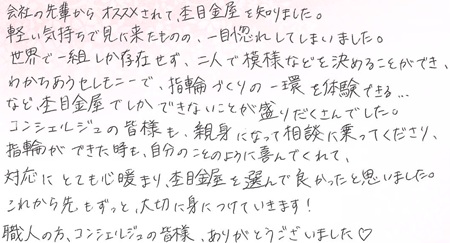 会社の先輩から オススメされて、杢目金屋を知りました。
軽い気持ちで見に来たものの、一目惚れしてしまいました。
世界で一組しか存在せず、二人で模様などを決めることができ、
わかちあうセレモニーで、指輪づくりの一環を体験できる…
など、杢目金屋でしかできないことが盛りだくさんでした。
コンシェルジュの皆様も、親身になって相談に乗ってくださり、
指輪ができた時も、自分のことのように喜んでくれて、
対応にとても心暖まり、杢目金屋を選んで良かったと思いました。
これから先もずっと、大切に身につけていきます!
職人の方、コンシェルジュの皆様、ありがとうございました♡